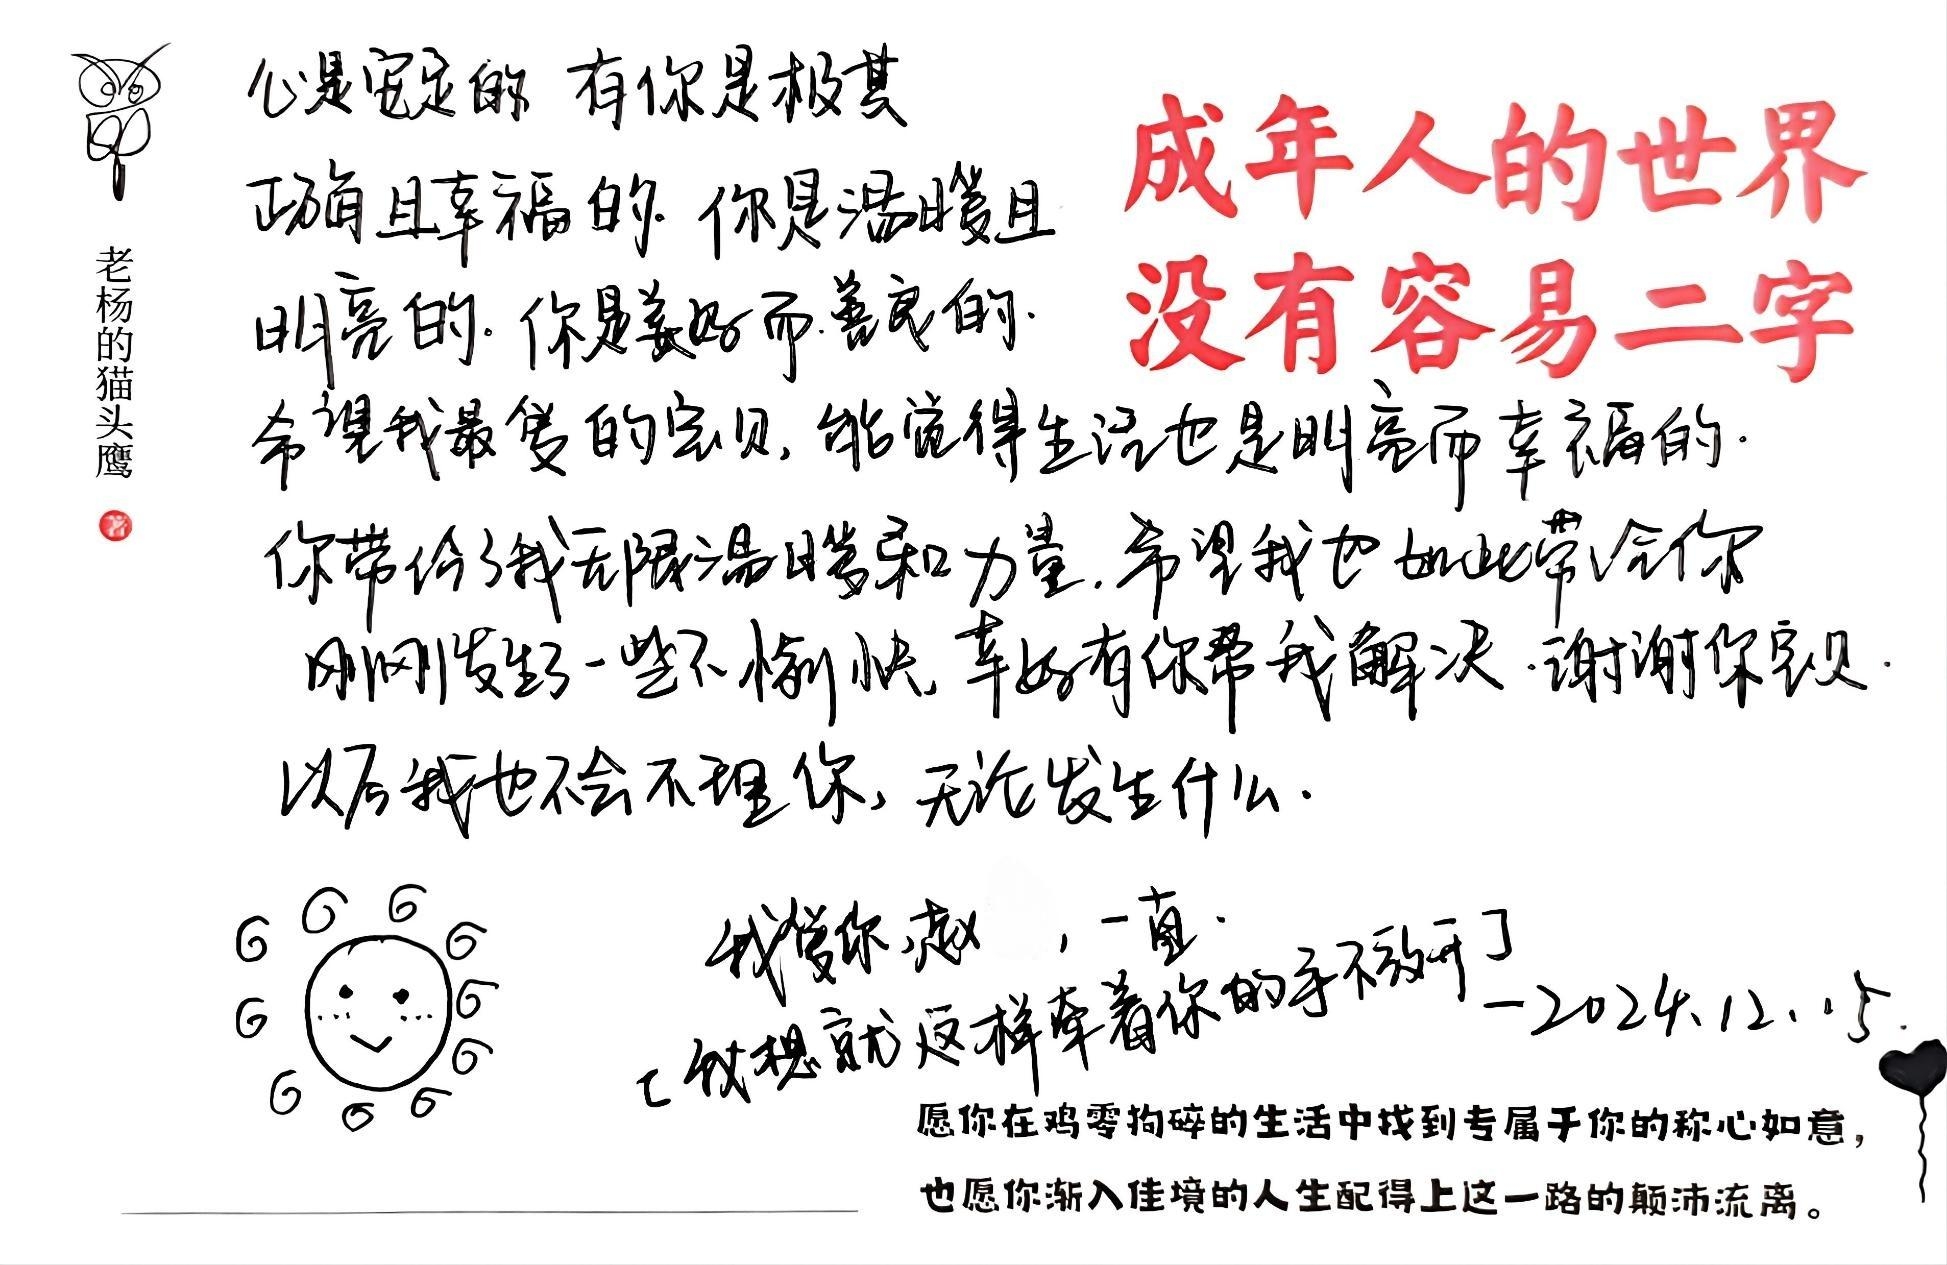 老杨的猫头鹰
成年人的世界
没有容易二字
心是安定的 有你是极其
正确且幸福的. 你是温暖且
明亮的. 你是美好而善良的.
希望我最爱的宝贝, 能觉得生活也是明亮而幸福的.
你带给了我无限温暖和力量. 希望我也如此带给你
刚刚发生了一些不愉快, 幸好有你帮我解决. 谢谢你宝贝.
以后我也不会不理你, 无论发生什么.
我爱你, 赵 , 一直.
[我想就这样牵着你的手不放开]
—2024.12.15.
愿你在鸡零狗碎的生活中找到专属于你的称心如意,
也愿你渐入佳境的人生配得上这一路的颠沛流离。